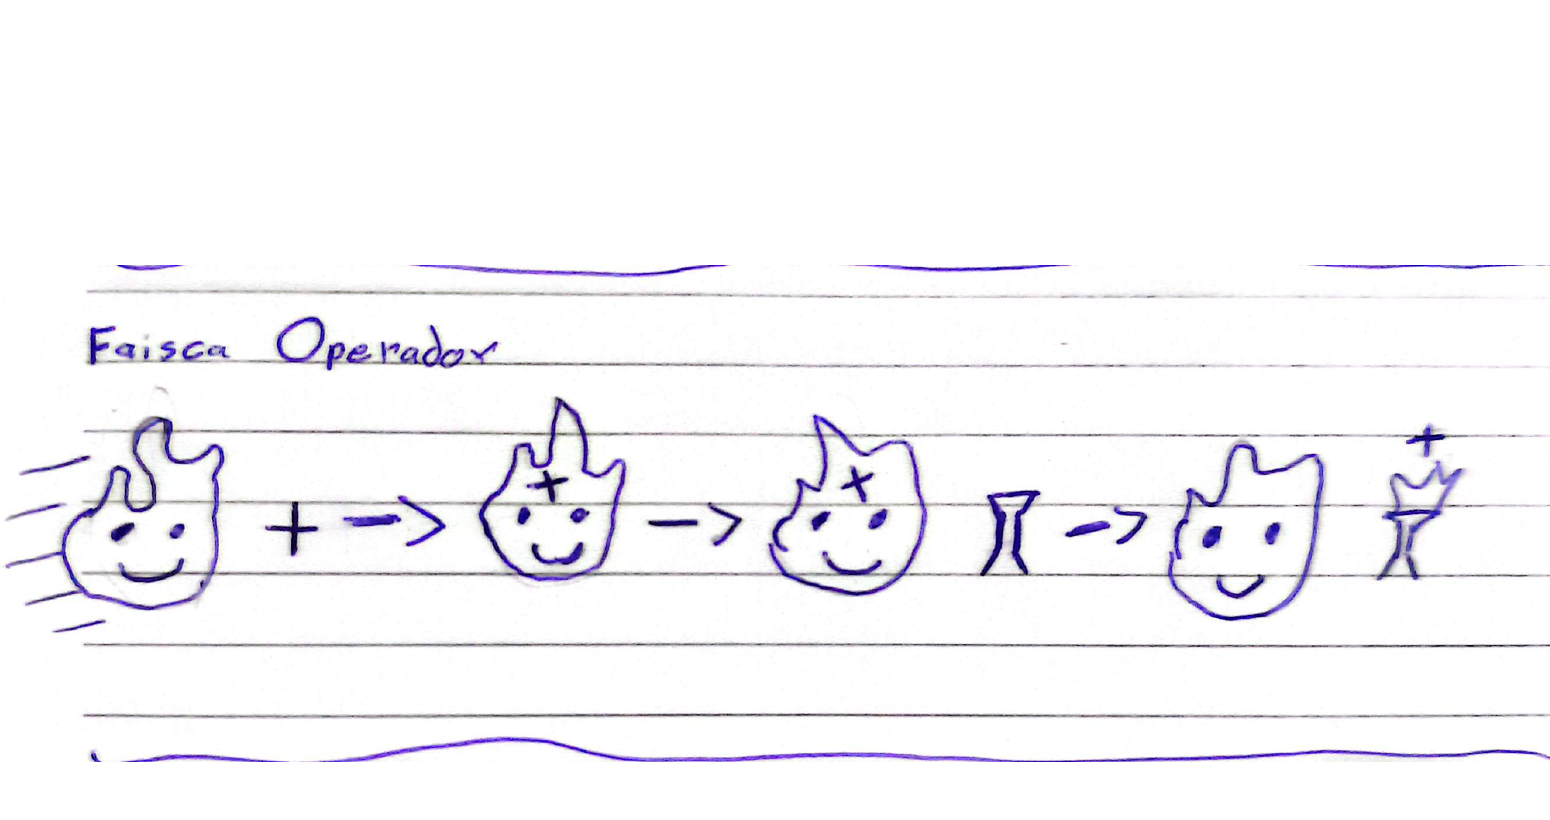 Faisca Operador
+ -> + -> + -> +